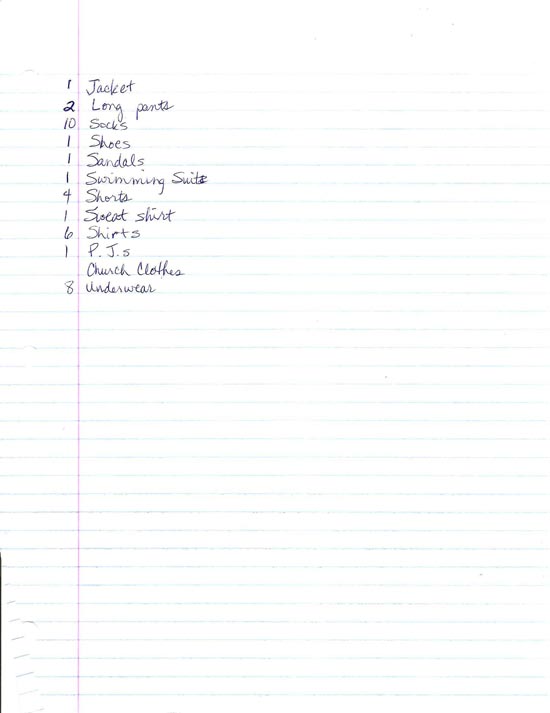 1 Jacket
2 Long pants
10 Socks
1 Shoes
1 Sandals
1 Swimming Suits
4 Shorts
1 Sweat shirt
6 Shirts
1 P.J.s
Church Clothes
8 Underwear